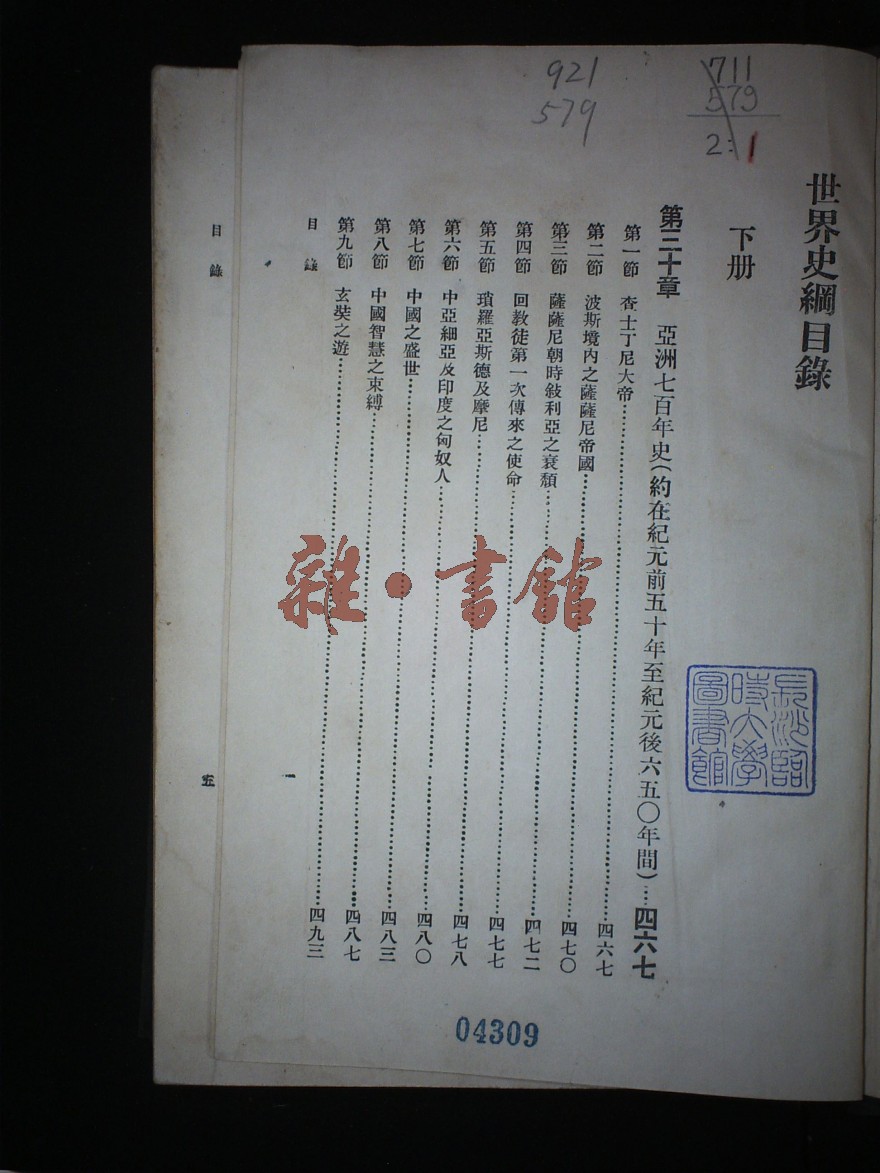 921
579
711
579
2:1
世界史綱目錄
下册
第三十章 亞洲七百年史(約在紀元前五十年至紀元後六五〇年間)…四六七
第一節 查士丁尼大帝……四六七
第二節 波斯境內之薩薩尼帝國……四七〇
第三節 薩薩尼朝時敍利亞之衰頹……四七二
第四節 回教徒第一次傳來之使命……四七七
第五節 瑣羅亞斯德及摩尼……四七八
第六節 中亞細亞及印度之匈奴人……四八〇
第七節 中國之盛世……四八三
第八節 中國智慧之束縛……四八七
第九節 玄奘之遊……四九三
目錄 一
目錄 五
長沙臨時大學圖書館
雜·書館
04309